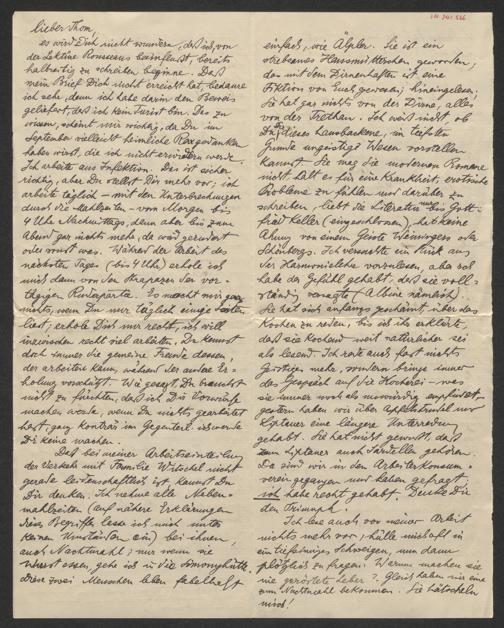 lieber Thom,
es wird Dich nicht wundern, daß ich, von
der Lektüre Rousseaus beeinflußt, bereits
zu schreiben beginne. Daß
mein Brief Dich nicht erreicht hat, bedaure
ich sehr, denn ich habe darin den Beweis
geliefert, daß ich kein Jurist bin. Das zu
wissen, scheint mir wichtig, da Du im
September vielleicht heimliche
haben wirst, die ich nicht erwidern werde.
Ich arbeite aus Infektion. Das ist sicher
richtig, aber Du stellst Dir mehr vor; ich
arbeite täglich – mit den Unterbrechungen
durch die Mahlzeiten – von Morgen bis
4 Uhr Nachmittags, dann aber bis zum
Abend gar nichts mehr, da wird gerudert
oder sonst was. Während der Arbeit des
nächsten Tages (bis 4 Uhr) erhole ich
mich dann von den Strapazen der vor-
tägigen Ruderpartie. Es macht mir gar
nichts, wenn Du nur täglich einige Seiten
liest; erhole Dich nur recht, ich will
inzwischen recht viel arbeiten. Du kennst
doch immer die gemeine Freude dessen,
der arbeiten kann, während der andere Er-
holung vorschützt. Wie gesagt, Du brauchst
nicht zu fürchten, daß ich Dir Vorwürfe
machen werde, wenn Du nichts gearbeitet
hast, ganz konträr im Gegenteil: ich werde
Dir keine machen.
Daß bei meiner Arbeitseinteilung
der Verkehr mit Familie nicht
gerade leidenschaftlich ist, kannst Du
Dir denken. Ich nehme alle Neben-
mahlzeiten (auf nähere Erklärungen
dieses Begriffs lasse ich mich unter
keinen Umständen ein) bei ihnen,
auch Nachtmahl; nur wenn sie
essen, gehe ich in die Simonyhütte.
Diese zwei Menschen leben fabelhaft
einfach, wie Älpler. Sie ist ein
Hausmütterchen geworden;
das mit dem Dirnenhaften ist eine
Fiktion von Euch gewesen; hineingelesen;
Sie hat gar nichts von der Dirne, alles
von der Ich weiß nicht ob
Du dieses hausbackene, im tiefsten
Grunde ungeistige Wesen vorstellen
kannst. Sie mag die modernen Romane
nicht, hält es für eine Krankheit, erotische
Probleme zu fühlen und darüber zu
schreiben, liebt die Literatur nur bis Gott-
fried Keller (eingeschlossen), hat keine
Ahnung von einem Geiste Weiningers oder
Schönbergs. Ich versuchte ein Stück aus
der Harmonielehre vorzulesen, aber ich
habe das Gefühl gehabt, daß sie voll-
ständig versagte (Albine nämlich).
Sie hat sich anfangs geschämt, über das
Kochen zu reden, bis ich ihr erklärte,
daß sie kochend weit natürlicher sei
als lesend. Ich rede auch fast nichts
Geistiges mehr, sondern bringe immer
das Gespräch auf die Kocherei – was
sie immer wohl als unwürdig empfindet –
gestern haben wir über Apfelstrudel und
Liptauer eine längere Unterredung
gehabt. Sie hat nicht gewußt, daß
zum Liptauer auch Sardellen gehören.
Da sind wir in den Arbeiterkonsum-
verein gegangen und haben gefragt,
ich habe recht gehabt. Denke Dir
den Triumph.
Ich lese auch vor neuer Arbeit
nichts mehr vor; hülle mich oft in
ein tiefsinniges Schweigen, um dann
plötzlich zu fragen: Warum machen sie
nie geröstete Leber? Gleich haben wir eine
zum Nachtmahl bekommen. Sie hätscheln
mich!